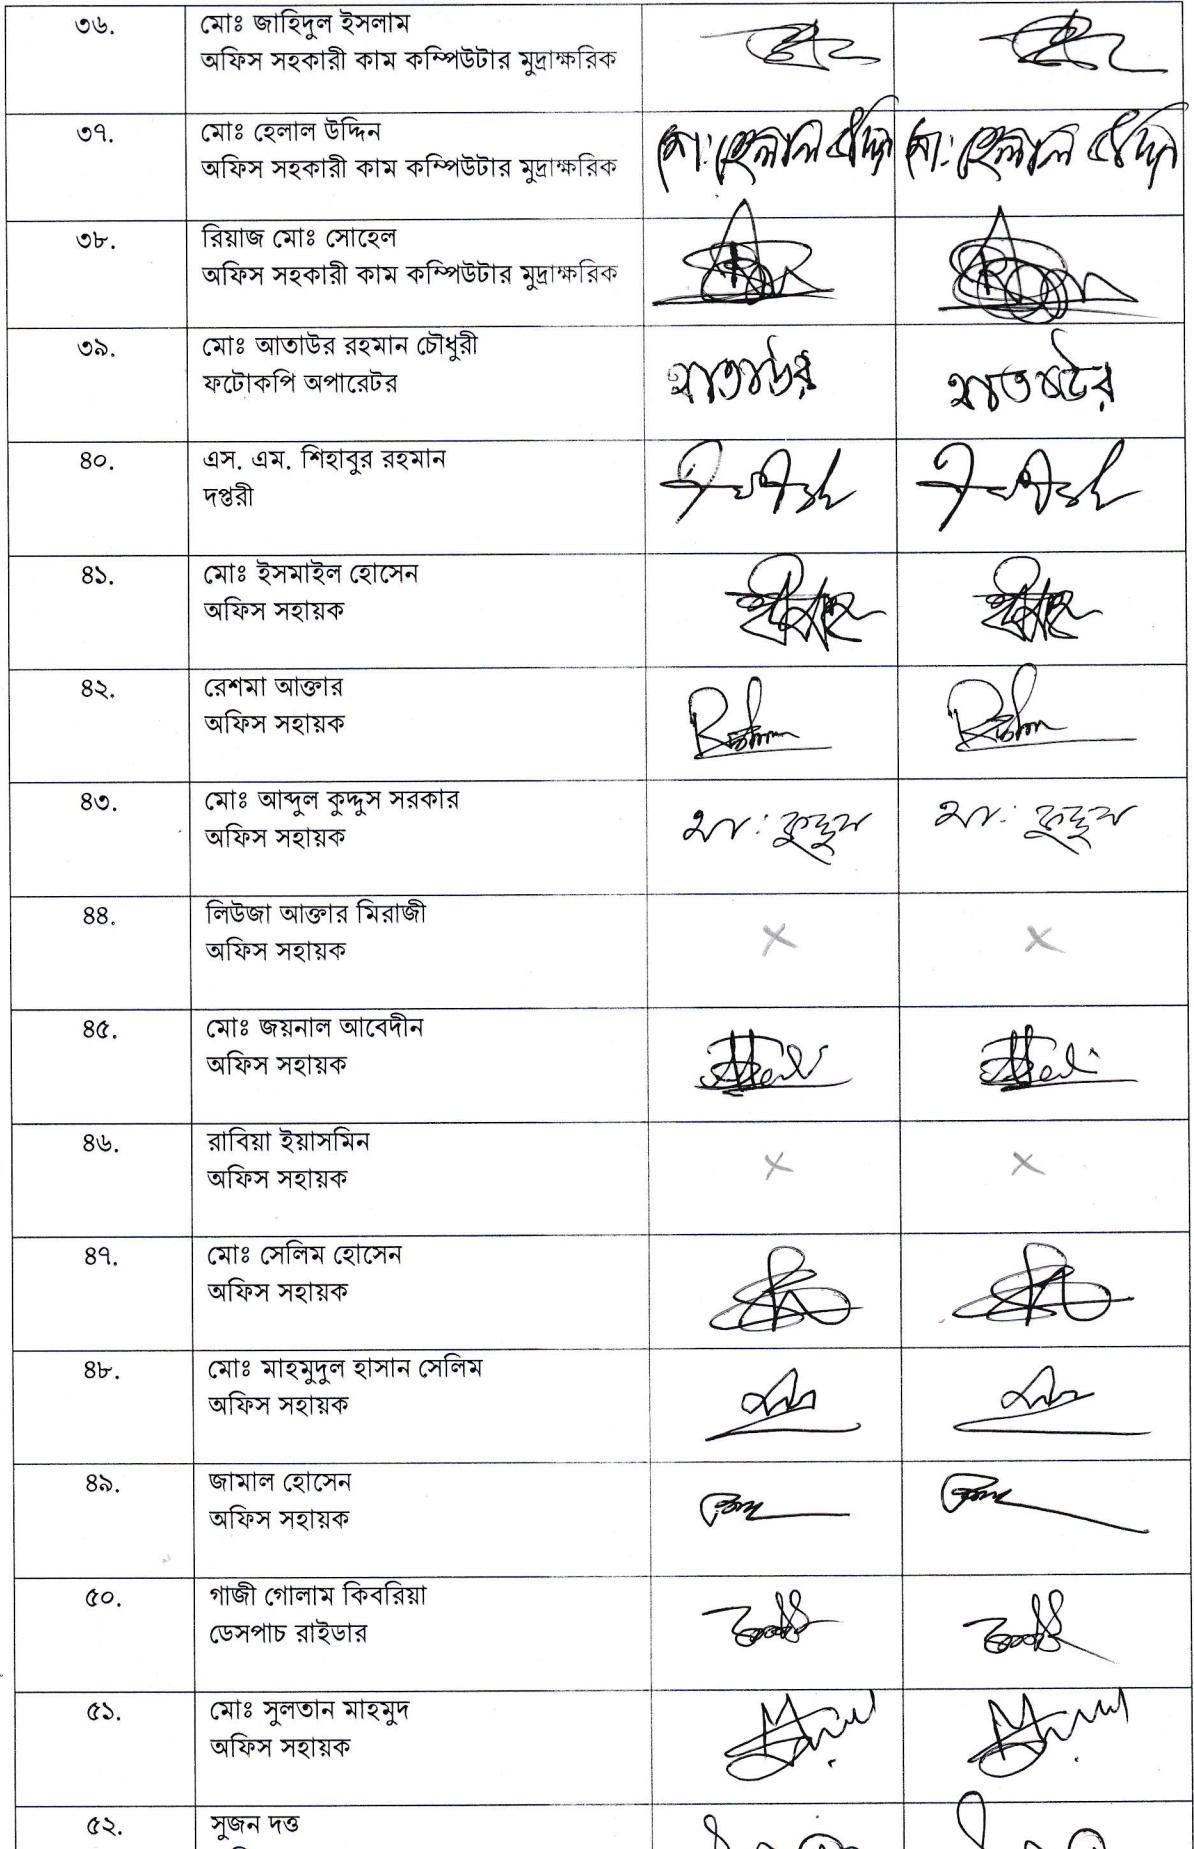 ৩৬.
মোঃ জাহিদুল ইসলাম
অফিস সহকারী কাম কম্পিউটার মুদ্রাক্ষরিক
৩৭.
মোঃ হেলাল উদ্দিন
অফিস সহকারী কাম কম্পিউটার মুদ্রাক্ষরিক
মো: হেলাল উদ্দিন মো: হেলাল উদ্দিন
৩৮.
রিয়াজ মোঃ সোহেল
অফিস সহকারী কাম কম্পিউটার মুদ্রাক্ষরিক
৩৯.
মোঃ আতাউর রহমান চৌধুরী
ফটোকপি অপারেটর
আতাউর আতাউর
৪০.
এস. এম. শিহাবুর রহমান
দপ্তরী
৪১.
মোঃ ইসমাইল হোসেন
অফিস সহায়ক
৪২.
রেশমা আক্তার
অফিস সহায়ক
৪৩.
মোঃ আব্দুল কুদ্দুস সরকার
অফিস সহায়ক
আ: কুদ্দুস আ: কুদ্দুস
৪৪.
লিউজা আক্তার মিরাজী
অফিস সহায়ক
× ×
৪৫.
মোঃ জয়নাল আবেদীন
অফিস সহায়ক
৪৬.
রাবিয়া ইয়াসমিন
অফিস সহায়ক
× ×
৪৭.
মোঃ সেলিম হোসেন
অফিস সহায়ক
৪৮.
মোঃ মাহমুদুল হাসান সেলিম
অফিস সহায়ক
৪৯.
জামাল হোসেন
অফিস সহায়ক
৫০.
গাজী গোলাম কিবরিয়া
ডেসপাচ রাইডার
৫১.
মোঃ সুলতান মাহমুদ
অফিস সহায়ক
৫২.
সুজন দত্ত